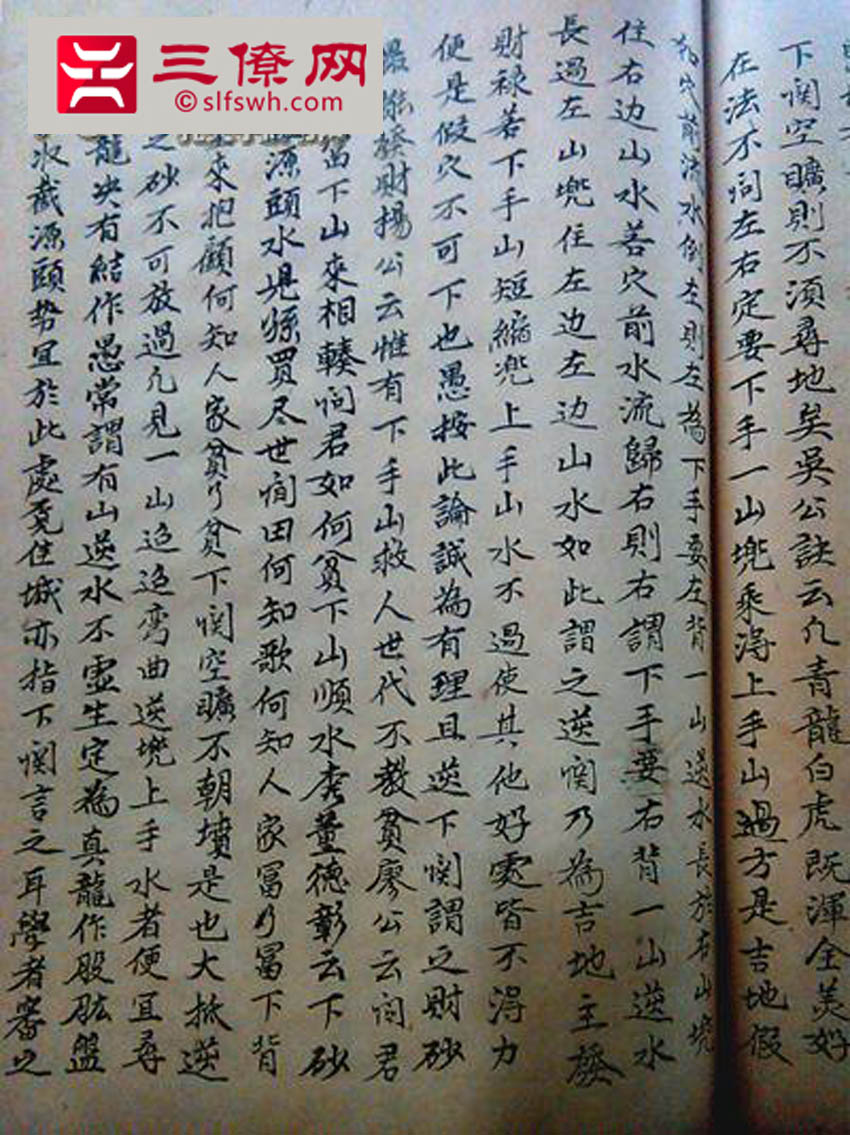 三僚网
©slfswh.com
下関空曠則不須尋地矣吳公訣云凡青龍白虎既渾全美好
在法不问左右定要下手一山兠乘淂上手山過方是吉地假
穴前流水倒左則左為下手要左背一山逆水長於右山
住右边山水若穴前水流歸右則右謂下手要右背一山逆水
長過左山兠住左边左边山水如此謂之逆関乃為吉地主發
財禄若下手山短縮兠上手山水不過使其他好處皆不得力
便是假穴不可下也愚按此論誠為有理且逆下関謂之財砂
最能發財揚公云惟有下手山救人世代不教貧廖公云问君
富下山來相轃问君如何貧下山順水奔董德彰云下砂
源頭水児孫買尽世间田何知歌何知人家富乃富下背
來抱顧何知人家貧乃貧下関空曠不朝墳是也大抵逆
之砂不可放過凢見一山迢迢弯曲逆兠上手水者便宜尋
龍决有結作愚常謂有山逆水不虛生定為真龍作股肱盤
水截源頭势宜於此處覔佳城亦指下関言之耳學者審之